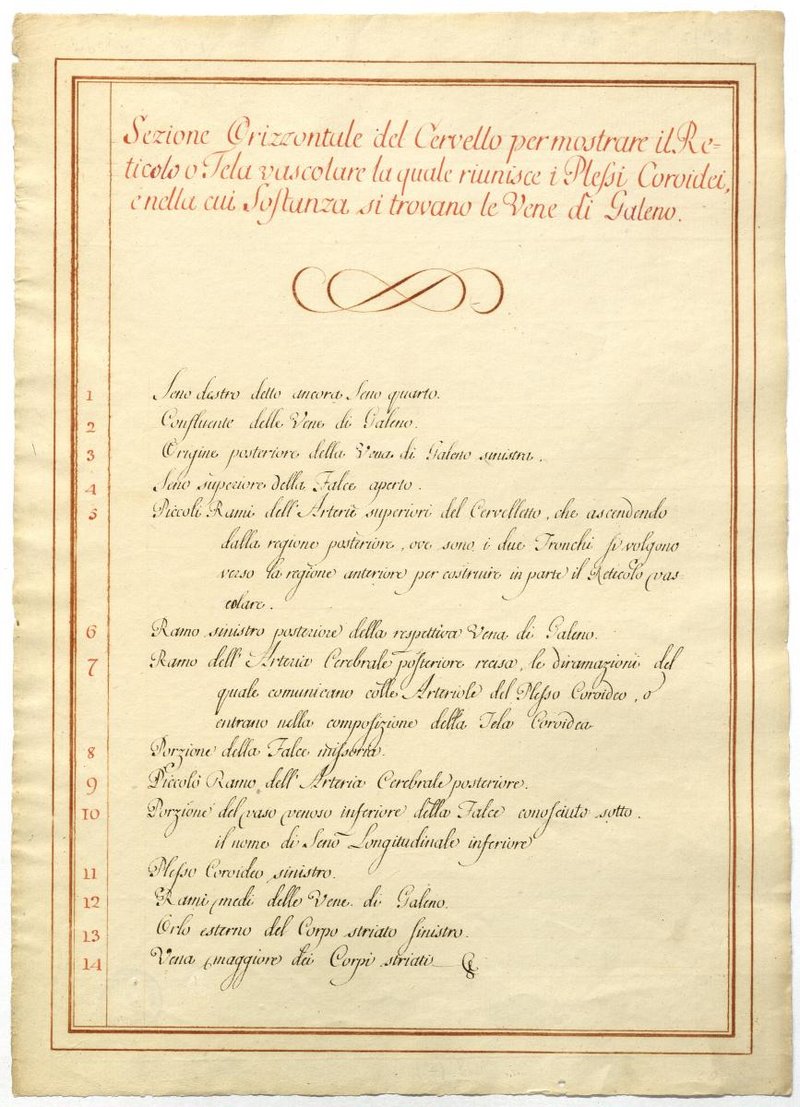 Sezione Orizzontale del Cervello per mostrare il Re-
ticolo o Tela vascolare la quale riunisce i Plessi Coroidei,
e nella cui Sostanza si trovano le Vene di Galeno.
1 Seno destro detto ancora Seno quarto.
2 Confluente delle Vene di Galeno.
3 Origine posteriore della Vena di Galeno sinistra.
4 Seno superiore della Falce aperto.
5 Piccoli Rami dell'Arterie superiori del Cervelleto, che ascendendo
dalla regione posteriore, ove sono i due Tronchi si volgono
verso la regione anteriore per costruire in parte il Reticolo vas
colare.
6 Ramo sinistro posteriore della respettiva Vena di Galeno.
7 Ramo dell'Arteria Cerebrale posteriore recisa, le diramazioni del
quale comunicano colle Arteriole del Plesso Coroideo, o
entrano nella composizione della Tela Coroidea
8 Porzione della Falce missoria.
9 Piccolo Ramo dell'Arteria Cerebrale posteriore.
10 Porzione del vaso venoso inferiore della Falce conosciuto sotto
il nome di Seno Longitudinale inferiore
11 Plesso Coroideo sinistro.
12 Rami medi delle Vene di Galeno.
13 Orlo esterno del Corpo striato sinistro.
14 Vena maggiore dei Corpi striati